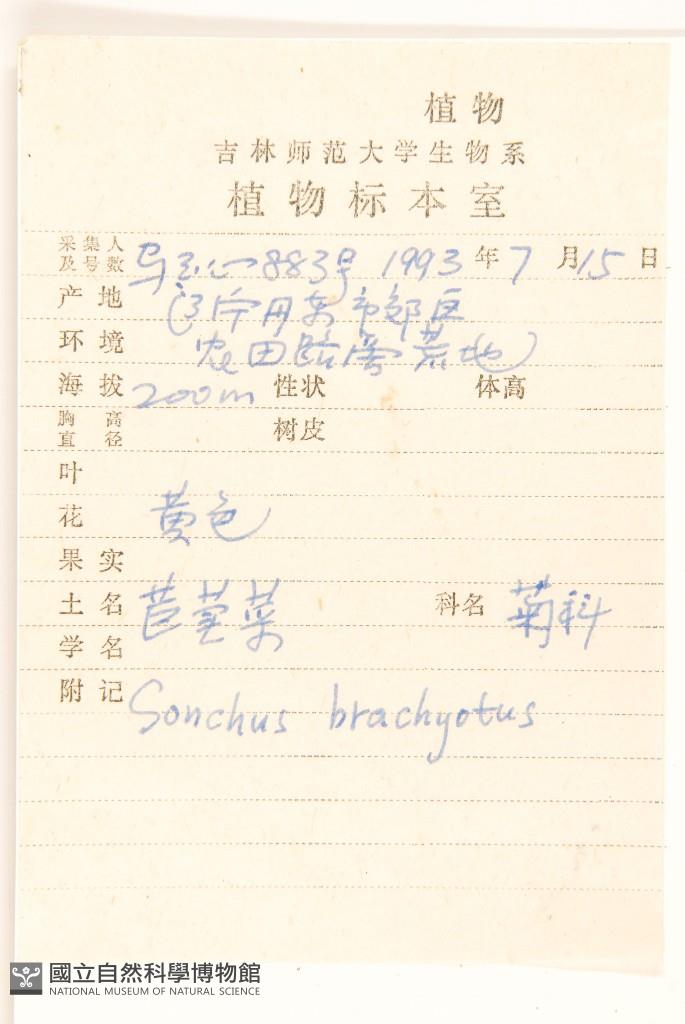 植物
吉林师范大学生物系
植物标本室
采集人及号数 883号 1993年7月15日
产地 辽宁丹东市郊区
环境 农田路旁荒地
海拔 200m 性状 体高
胸高直径 树皮
叶
花 黄色
果实
土名 苣荬菜 科名 菊科
学名
附记 Sonchus brachyotus
國立自然科學博物館
NATIONAL MUSEUM OF NATURAL SCIENCE